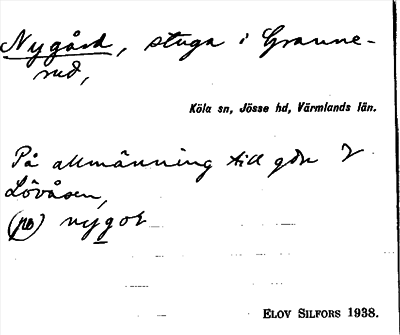 Nygård, stuga i Granne-
rud,
Köla sn, Jösse hd, Värmlands län.
På allmänning till gdn
Lövåsen,
(på) nygoḷ
ELOV SILFORS 1938.